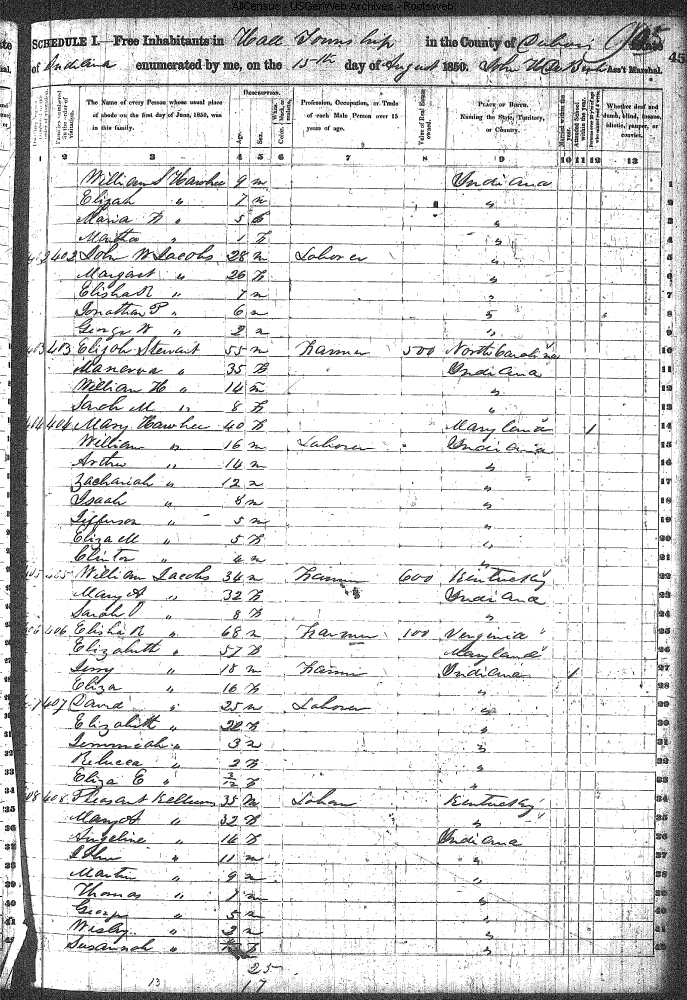 AllCensus - USGenWeb Archives - Rootsweb
SCHEDULE I.—Free Inhabitants in Hall Township in the County of State
of Indiana enumerated by me, on the 15th day of August 1850. John Ass't Marshal.
45
DESCRIPTION.
The Name of every Person whose usual place of abode on the first day of June, 1850, was in this family.
Age.
Sex.
Profession, Occupation, or Trade of each Male Person over 15 years of age.
Value of Real Estate owned.
PLACE OF BIRTH. Naming the State, Territory, or Country.
Married within the year.
Attended School within the year.
Whether deaf and dumb, blind, insane, idiotic, pauper, or convict.
1 2 3 4 5 6 7 8 9 10 11 12 13
William S Hawhee 9 m Indiana 1
Elijah " 7 m " 2
Maria " 5 f " 3
Martha " 1 f " 4
402 402 John W Jacobs 28 m Laborer " 5
Margaret " 26 f " 6
Elisha R " 7 m " 7
Jonathan P " 6 m " 8
George W " 2 m " 9
403 403 Elijah Stewart 55 m Farmer 500 North Carolina 10
Manerva " 35 f Indiana 11
William H " 14 m " 12
Sarah M " 8 f " 13
404 404 Mary Hawhee 40 f Maryland 1 14
William " 16 m Laborer Indiana 15
" 14 m " 16
Zachariah " 12 m " 17
Isaah " 8 m " 18
Jefferson " 5 m " 19
Eliza M " 5 f " 20
Clinton " 4 m " 21
405 405 William Jacobs 34 m Farmer 600 Kentucky 22
Mary A " 32 f Indiana 23
Sarah " 8 f " 24
406 406 Elisha R " 68 m Farmer 100 Virginia 25
Elizabeth " 57 f Maryland 26
" 18 m Farmer Indiana 1 27
Eliza " 16 f " 28
407 407 David " 25 m Laborer " 29
Elizabeth " 22 f " 30
" 3 m " 31
Rebecca " 2 f " 32
Eliza E " 2/12 f " 33
408 408 Pleasant Kellums 35 m Kentucky 34
Mary A " 32 f " 35
Angeline " 14 f Indiana 36
John " 11 m " 37
Martin " 9 m " 38
Thomas " 7 m " 39
George " 5 m " 40
Wesley " 3 m " 41
Susannah " f " 42
25
13 17